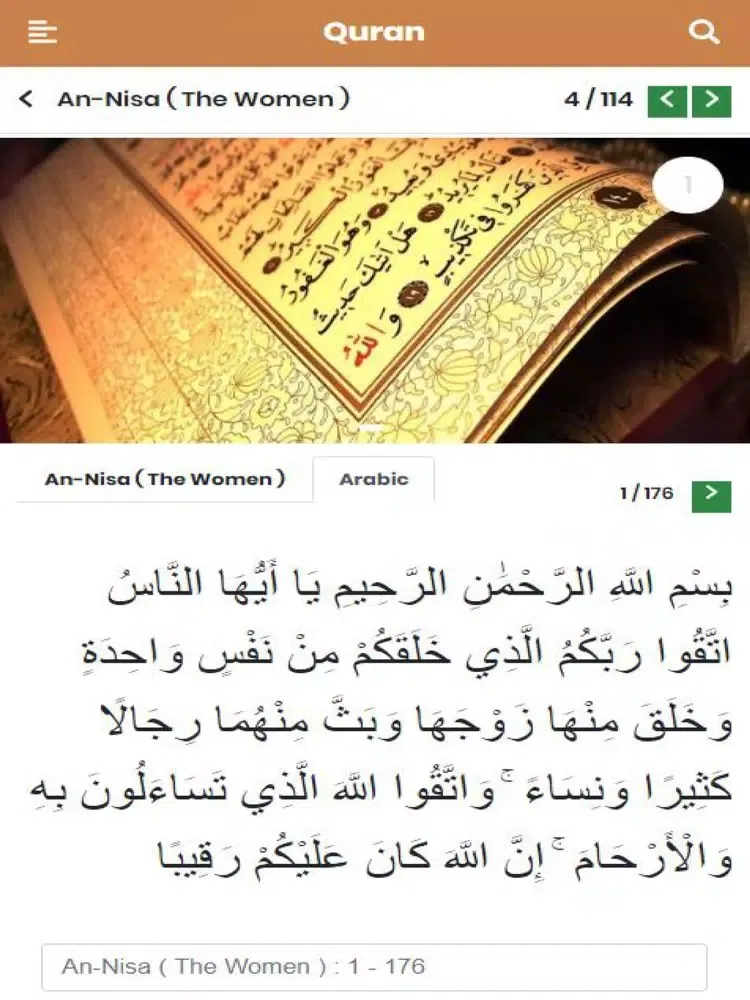 Quran
An-Nisa ( The Women )
4 / 114
1
وَهُوَ الْغَفُورُ
هَلْ أَتَاكَ حَدِيثُ
كَفَرُوا فِي تَكْذِيبٍ
وَاللَّهُ
An-Nisa ( The Women )
Arabic
1 / 176
بِسْمِ اللَّهِ الرَّحْمَٰنِ الرَّحِيمِ يَا أَيُّهَا النَّاسُ
اتَّقُوا رَبَّكُمُ الَّذِي خَلَقَكُمْ مِنْ نَفْسٍ وَاحِدَةٍ
وَخَلَقَ مِنْهَا زَوْجَهَا وَبَثَّ مِنْهُمَا رِجَالًا
كَثِيرًا وَنِسَاءً ۚ وَاتَّقُوا اللَّهَ الَّذِي تَسَاءَلُونَ بِهِ
وَالْأَرْحَامَ ۚ إِنَّ اللَّهَ كَانَ عَلَيْكُمْ رَقِيبًا
An-Nisa ( The Women ) : 1 - 176